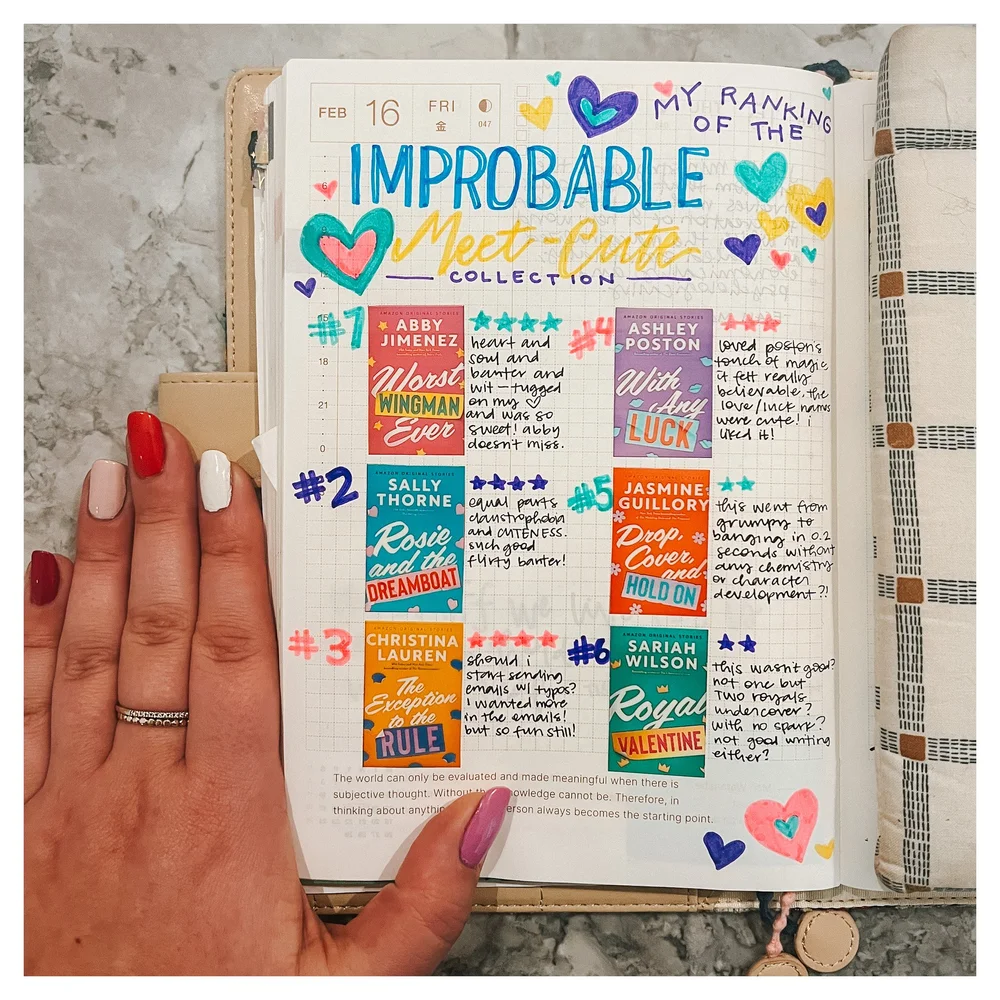 FEB 16 FRI
金 047
MY RANKING
OF THE
IMPROBABLE
Meet-Cute
COLLECTION
6
12
15
18
21
0
#1
AMAZON ORIGINAL STORIES
ABBY
JIMENEZ
Worst
WINGMAN
Ever
heart and
soul and
banter and
wit - tugged
on my ♡
and was so
sweet! abby
doesn't miss.
#2
AMAZON ORIGINAL STORIES
SALLY
THORNE
Rosie
and the
DREAMBOAT
equal parts
claustrophobia
and CUTENESS.
such good
flirty banter!
#3
AMAZON ORIGINAL STORIES
CHRISTINA
LAUREN
The
Exception
to the
RULE
should i
start sending
emails w/ typos?
i wanted more
in the emails!
but so fun still!
#4
AMAZON ORIGINAL STORIES
ASHLEY
POSTON
With
Any
LUCK
loved poston's
touch of magic,
it felt really
believable. the
love/luck names
were cute! i
liked it!
#5
AMAZON ORIGINAL STORIES
JASMINE
GUILLORY
Drop,
Cover,
and
HOLD ON
this went from
grumpy to
banging in 0.2
seconds without
any chemistry
or character
development?!
#6
AMAZON ORIGINAL STORIES
SARIAH
WILSON
Royal
VALENTINE
this wasn't good?
not one but
TWO royals
undercover?
with no spark?
not good writing
either?
The world can only be evaluated and made meaningful when there is
subjective thought. Without knowledge cannot be. Therefore, in
thinking about person always becomes the starting point.